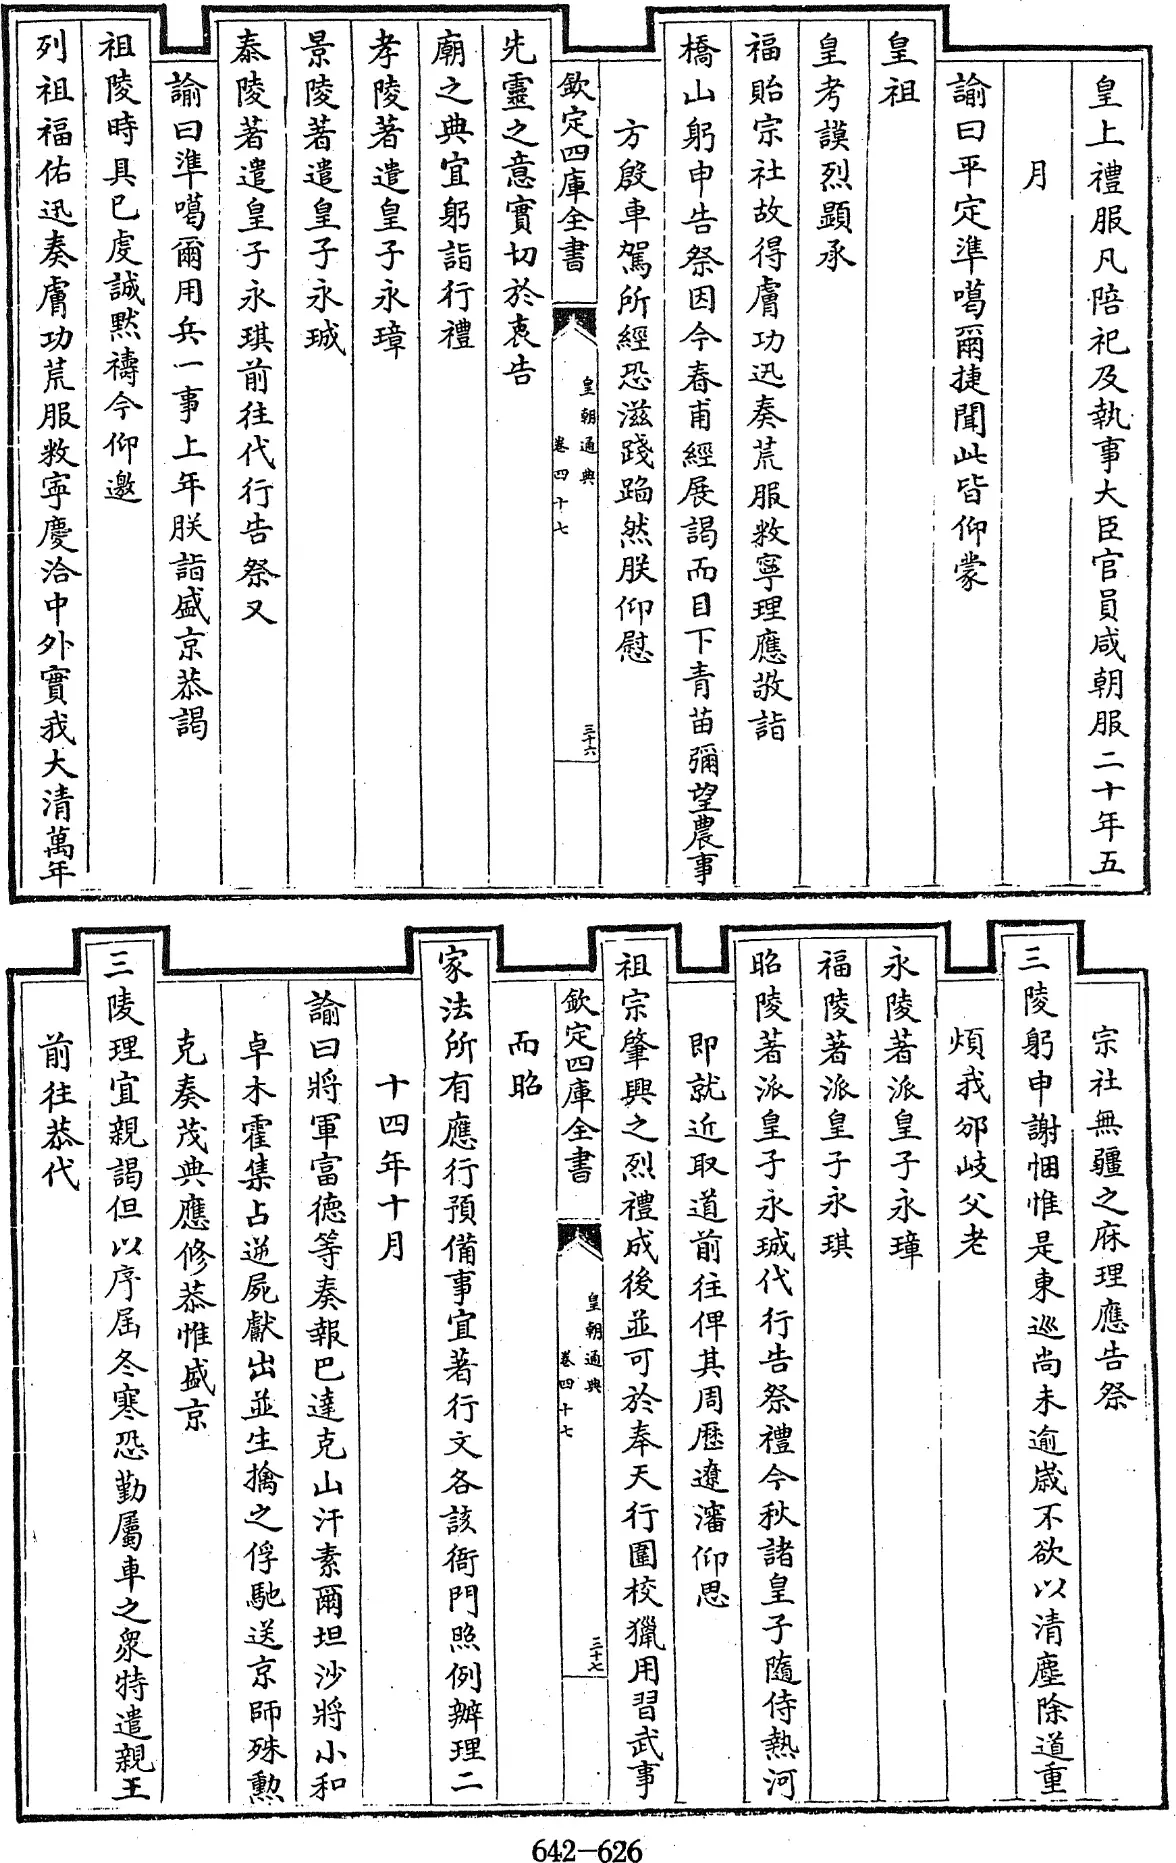 皇上禮服凡陪祀及執事大臣官員咸朝服二十年五
月
諭曰平定準噶爾捷聞此皆仰蒙
皇祖
皇考謨烈顯承
福貽宗社故得膚功迅奏荒服敉寧理應敬詣
橋山躬申告祭因今春甫經展謁而目下青苗彌望農事
方殷車駕所經恐滋踐踏然朕仰慰
欽定四庫全書
皇朝通典
卷四十七
三十六
先靈之意實切於衷告
廟之典宜躬詣行禮
孝陵著遣皇子永璋
景陵著遣皇子永珹
泰陵著遣皇子永琪前往代行告祭又
諭曰準噶爾用兵一事上年朕詣盛京恭謁
祖陵時具已虔誠默禱今仰邀
列祖福佑迅奏膚功荒服敉寧慶洽中外實我大清萬年
宗社無疆之庥理應告祭
三陵躬申謝悃惟是東巡尚未逾嵗不欲以清塵除道重
煩我邠岐父老
永陵著派皇子永璋
福陵著派皇子永琪
昭陵著派皇子永珹代行告祭禮今秋諸皇子隨侍熱河
即就近取道前往俾其周歷遼瀋仰思
祖宗肇興之烈禮成後並可於奉天行圍校獵用習武事
欽定四庫全書
皇朝通典
卷四十七
三十七
而昭
家法所有應行預備事宜著行文各該衙門照例辦理二
十四年十月
諭曰將軍富德等奏報巴達克山汗素爾坦沙將小和
卓木霍集占逆屍獻出並生擒之俘馳送京師殊勲
克奏茂典應修恭惟盛京
三陵理宜親謁但以序屆冬寒恐勤屬車之衆特遣親王
前往恭代
642-626